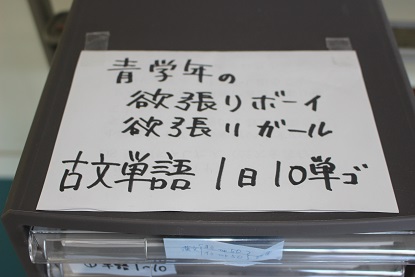 青学年の
欲張りボーイ
欲張りガール
古文単語 1日10単ゴ